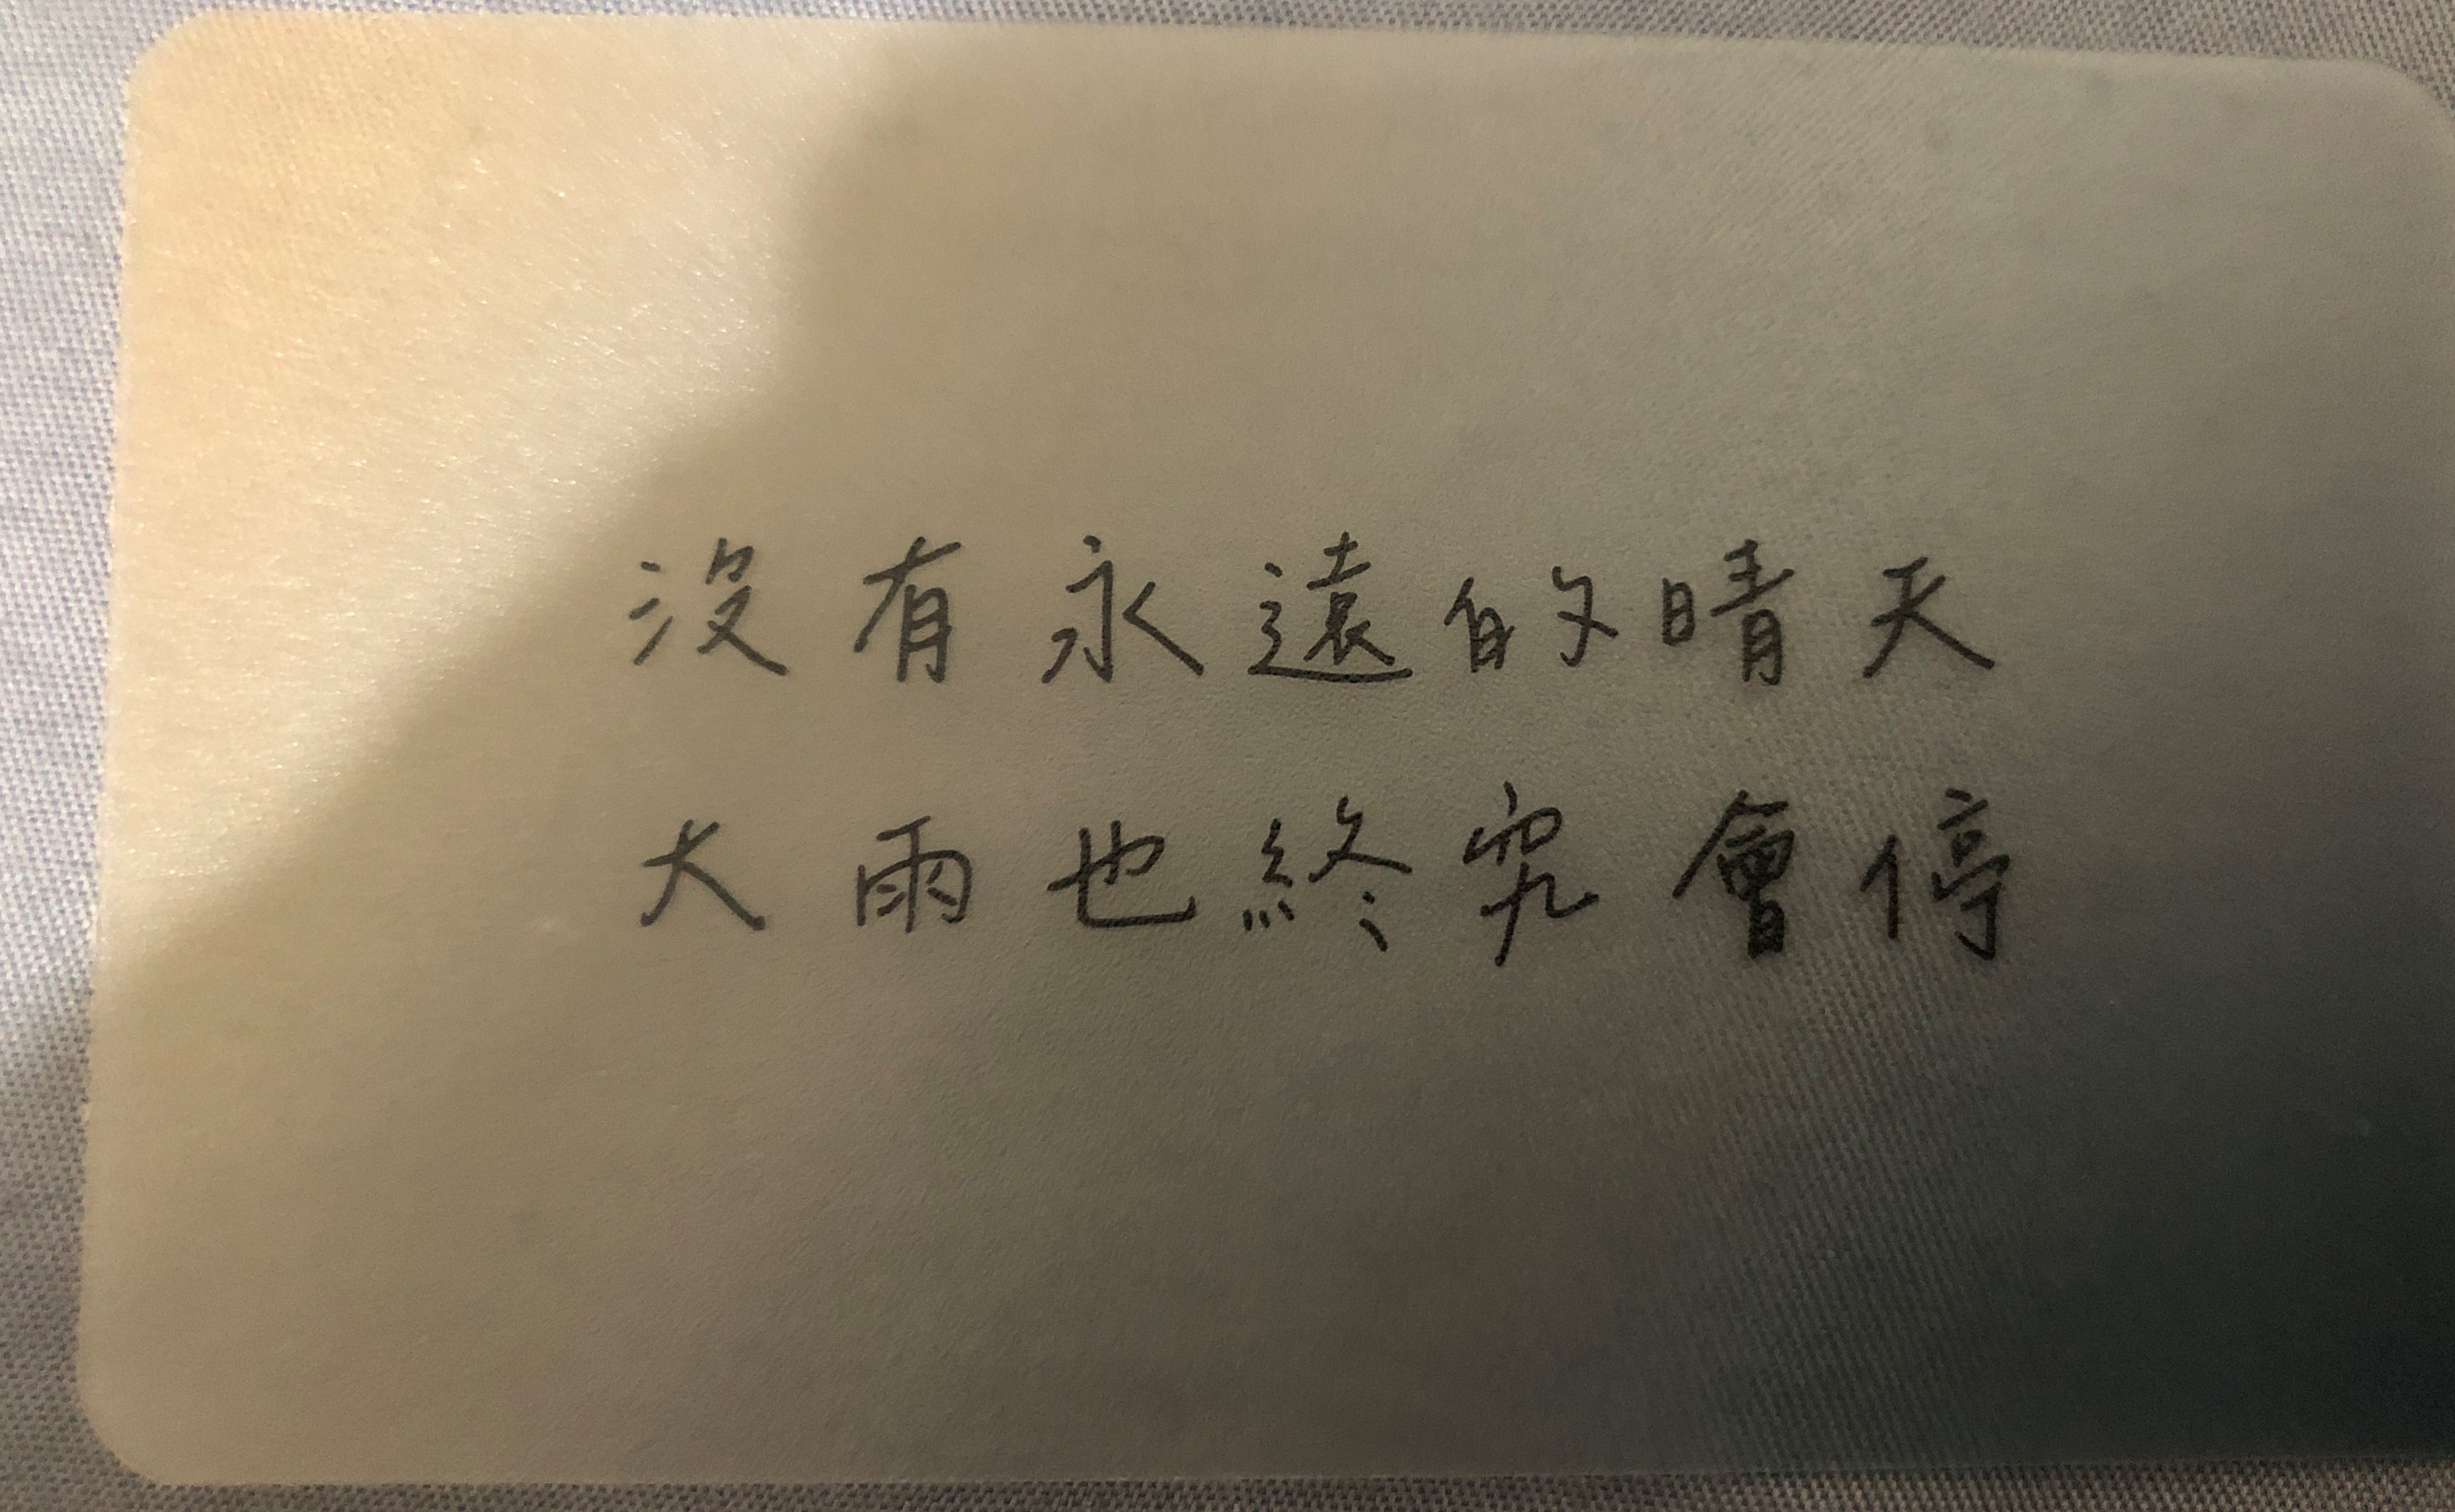 沒有永遠的晴天
大雨也終究會停